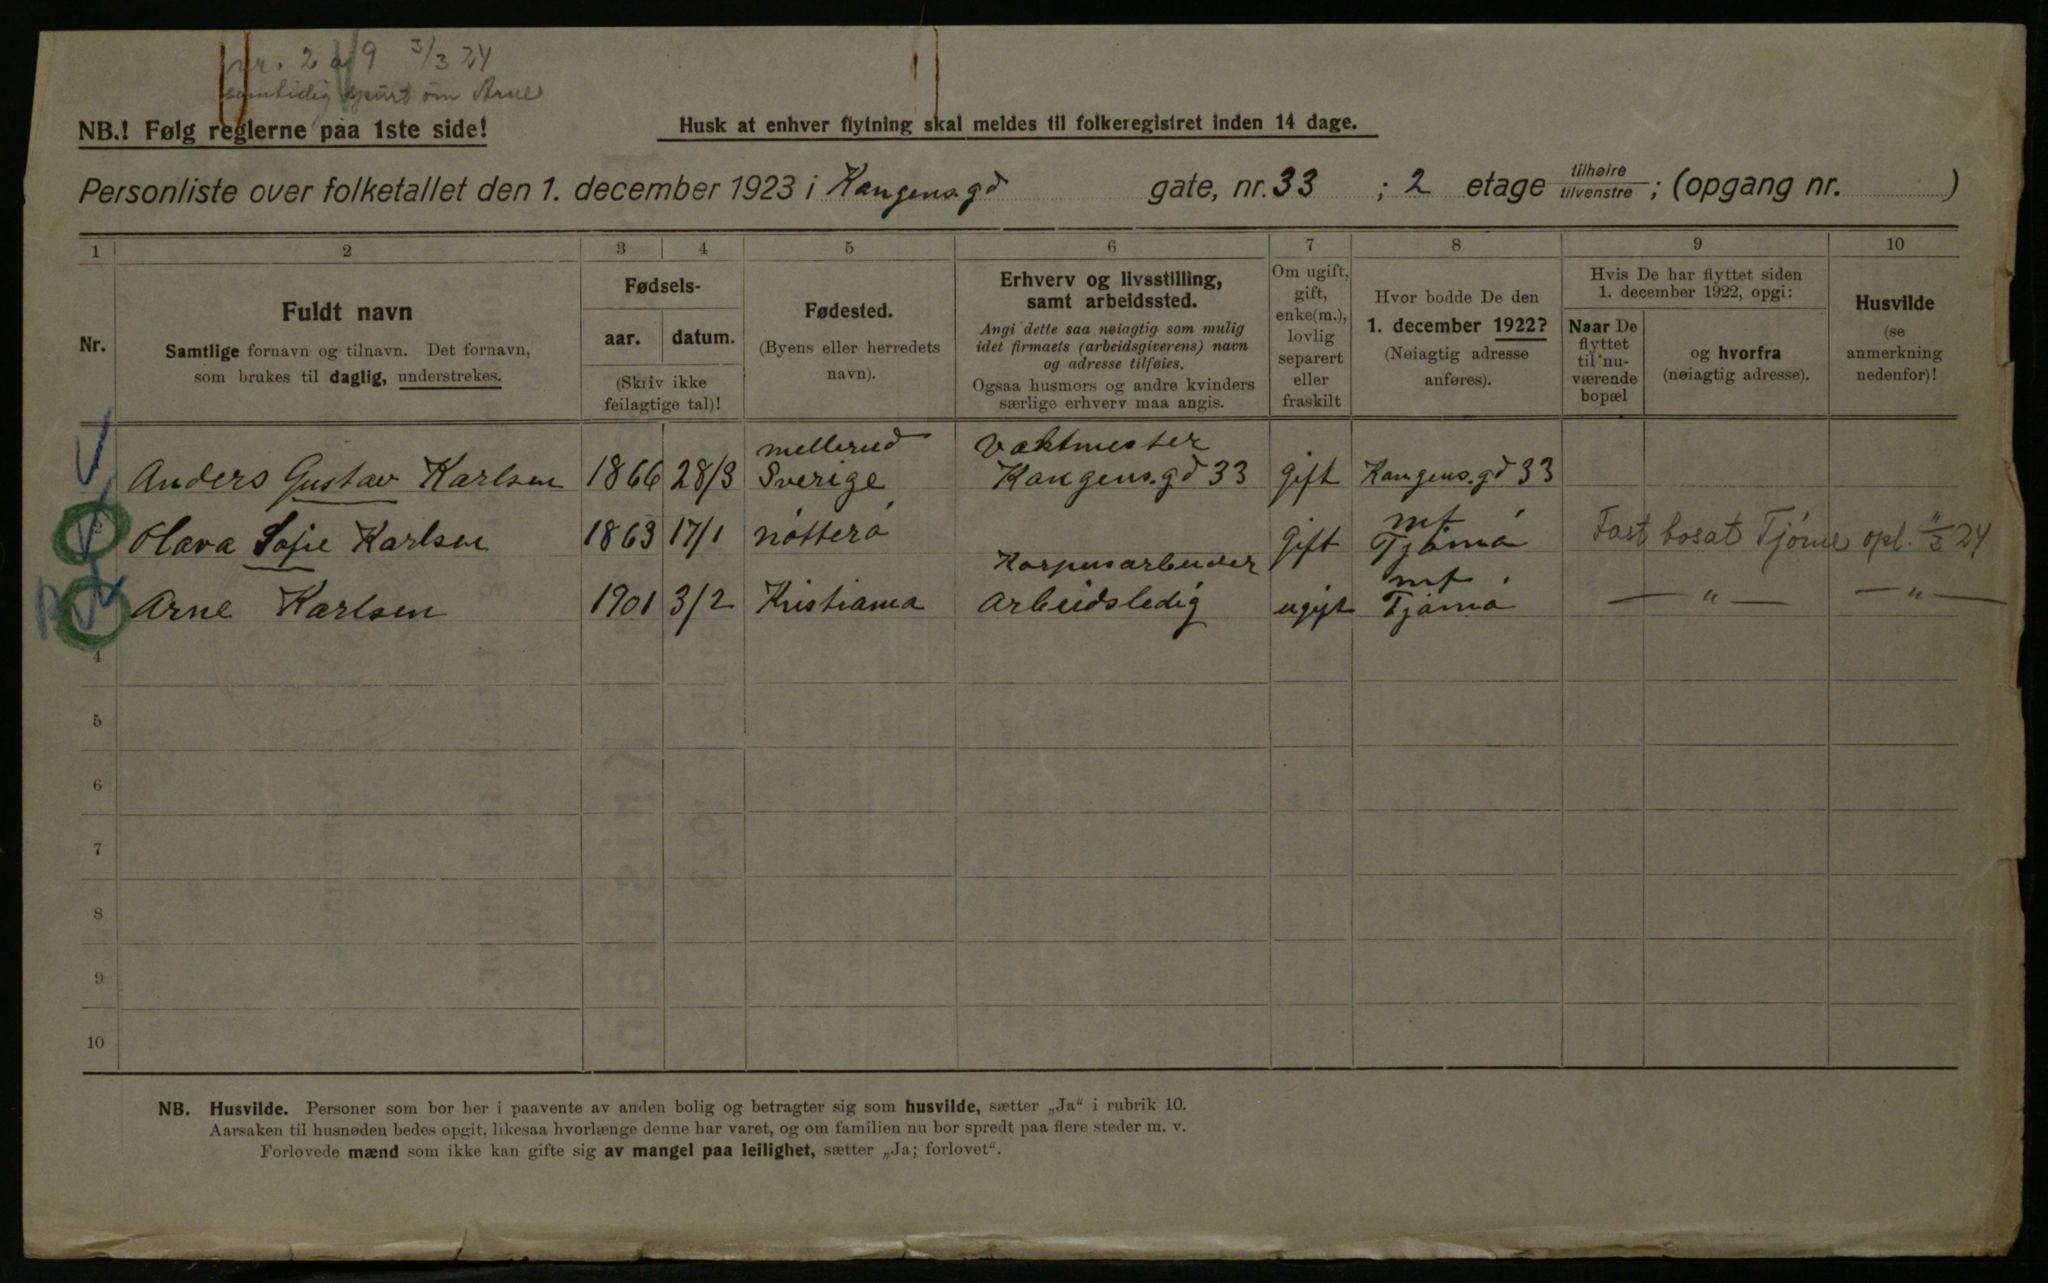 nr. 2 3/3 24
samtidig spurt om Arne
NB.! Følg reglerne paa 1ste side!
Husk at enhver flytning skal meldes til folkeregistret inden 14 dage.
Personliste over folketallet den 1. december 1923 i Kongens.gd gate, nr. 33 ; 2 etage tilhøire tilvenstre ; (opgang nr. )
1 2 3 4 5 6 7 8 9 10
Nr.
Fuldt navn
Samtlige fornavn og tilnavn. Det fornavn,
som brukes til daglig, understrekes.
Fødsels-
aar. datum.
(Skriv ikke
feilagtige tal)!
Fødested.
(Byens eller herredets
navn).
Erhverv og livsstilling,
samt arbeidssted.
Angi dette saa nøiagtig som mulig
idet firmaets (arbeidsgiverens) navn
og adresse tilføies.
Ogsaa husmors og andre kvinders
særlige erhverv maa angis.
Om ugift,
gift,
enke(m.),
lovlig
separert
eller
fraskilt
Hvor bodde De den
1. december 1922?
(Nøiagtig adresse
anføres).
Hvis De har flyttet siden
1. december 1922, opgi:
Naar De
flyttet
til nu-
værende
bopæl
og hvorfra
(nøiagtig adresse).
Husvilde
(se
anmerkning
nedenfor)!
mellerud Vaktmester
Anders Gustav Karlsen 1866 28/3 Sverige Kongens.gd 33 gift Kongens.gd 33
mf
2 Olava Sofie Karlsen 1863 17/1 nótteró gift Tjómó Fast bosat Tjóme opl. 11/3 24
Korpusarbeider mf
Arne Karlsen 1901 3/2 Kristiania Arbeidsledig ugift Tjómó — " — — " —
4
5
6
7
8
9
10
NB. Husvilde. Personer som bor her i paavente av anden bolig og betragter sig som husvilde, sætter „Ja“ i rubrik 10.
Aarsaken til husnøden bedes opgit, likesaa hvorlænge denne har varet, og om familien nu bor spredt paa flere steder m. v.
Forlovede mænd som ikke kan gifte sig av mangel paa leilighet, sætter „Ja; forlovet“.